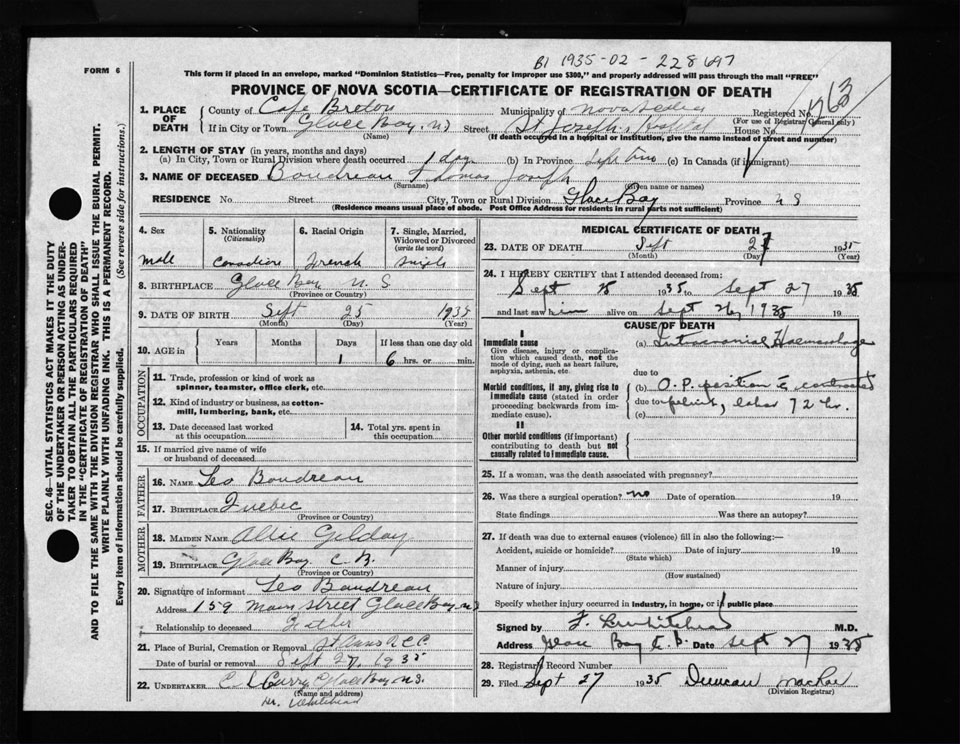 B1 1935-02-228697
FORM 6
This form if placed in an envelope, marked "Dominion Statistics—Free, penalty for improper use $300," and properly addressed will pass through the mail "FREE"
PROVINCE OF NOVA SCOTIA—CERTIFICATE OF REGISTRATION OF DEATH
1. PLACE OF DEATH
County of Cape Breton Municipality of Nova Scotia Registered No.
(For use of Registrar General only)
If in City or Town Glace Bay, N S Street St Joseph's Hospital House No.
(Name) (If death occurred in a hospital or institution, give the name instead of street and number)
2. LENGTH OF STAY (in years, months and days)
(a) In City, Town or Rural Division where death occurred 1 day (b) In Province Life Time (c) In Canada (if immigrant)
3. NAME OF DECEASED Boudreau Thomas Joseph
(Surname) (Given name or names)
RESIDENCE No. Street City, Town or Rural Division Glace Bay Province N S
(Residence means usual place of abode. Post Office Address for residents in rural parts not sufficient)
4. Sex
male
5. Nationality (Citizenship)
Canadian
6. Racial Origin
French
7. Single, Married, Widowed or Divorced (write the word)
Single
8. BIRTHPLACE Glace Bay N. S
(Province or Country)
9. DATE OF BIRTH Sept 25 1935
(Month) (Day) (Year)
10. AGE in
Years Months Days If less than one day old
1 6 hrs. or min.
OCCUPATION
11. Trade, profession or kind of work as spinner, teamster, office clerk, etc.
12. Kind of industry or business, as cotton-mill, lumbering, bank, etc.
13. Date deceased last worked at this occupation
14. Total yrs. spent in this occupation
15. If married give name of wife or husband of deceased
FATHER
16. NAME Leo Boudreau
17. BIRTHPLACE Quebec
(Province or Country)
MOTHER
18. MAIDEN NAME Allie Gilday
19. BIRTHPLACE Glace Bay C. B.
(Province or Country)
20. Signature of informant Leo Boudreau
Address 159 Main Street Glace Bay N S
Relationship to deceased Father
21. Place of Burial, Cremation or Removal St Anns R C C
Date of burial or removal Sept 27, 1935
22. UNDERTAKER Curry Glace Bay N S.
(Name and address)
Dr. Whitehead
MEDICAL CERTIFICATE OF DEATH
23. DATE OF DEATH Sept 27 1935
(Month) (Day) (Year)
24. I HEREBY CERTIFY that I attended deceased from:
Sept 1935 to Sept 27 1935
and last saw him alive on Sept 26, 1935 19
CAUSE OF DEATH
I
Immediate cause
Give disease, injury or complication which caused death, not the mode of dying, such as heart failure, asphyxia, asthenia, etc.
(a) Intracranial Haemorrhage
due to
Morbid conditions, if any, giving rise to immediate cause (stated in order proceeding backwards from immediate cause).
(b) O. P. position c contracted
due to pelvis, labor 72 hr.
(c)
II
Other morbid conditions (if important) contributing to death but not causally related to immediate cause.
25. If a woman, was the death associated with pregnancy?
26. Was there a surgical operation? no Date of operation 19
State findings Was there an autopsy?
27. If death was due to external causes (violence) fill in also the following:—
Accident, suicide or homicide? Date of injury 19
(State which)
Manner of injury
(How sustained)
Nature of injury
Specify whether injury occurred in industry, in home, or in public place
Signed by Whitehead M.D.
Address Glace Bay C. B. Date Sept 27 1935
28. Registrar's Record Number
29. Filed Sept 27 1935 Duncan MacRae
(Division Registrar)
SEC. 46—VITAL STATISTICS ACT MAKES IT THE DUTY
OF THE UNDERTAKER OR PERSON ACTING AS UNDER-
TAKER TO OBTAIN ALL THE PARTICULARS REQUIRED
IN THE "CERTIFICATE OF REGISTRATION OF DEATH"
AND TO FILE THE SAME WITH THE DIVISION REGISTRAR WHO SHALL ISSUE THE BURIAL PERMIT.
WRITE PLAINLY WITH UNFADING INK. THIS IS A PERMANENT RECORD.
Every item of information should be carefully supplied. (See reverse side for instructions.)